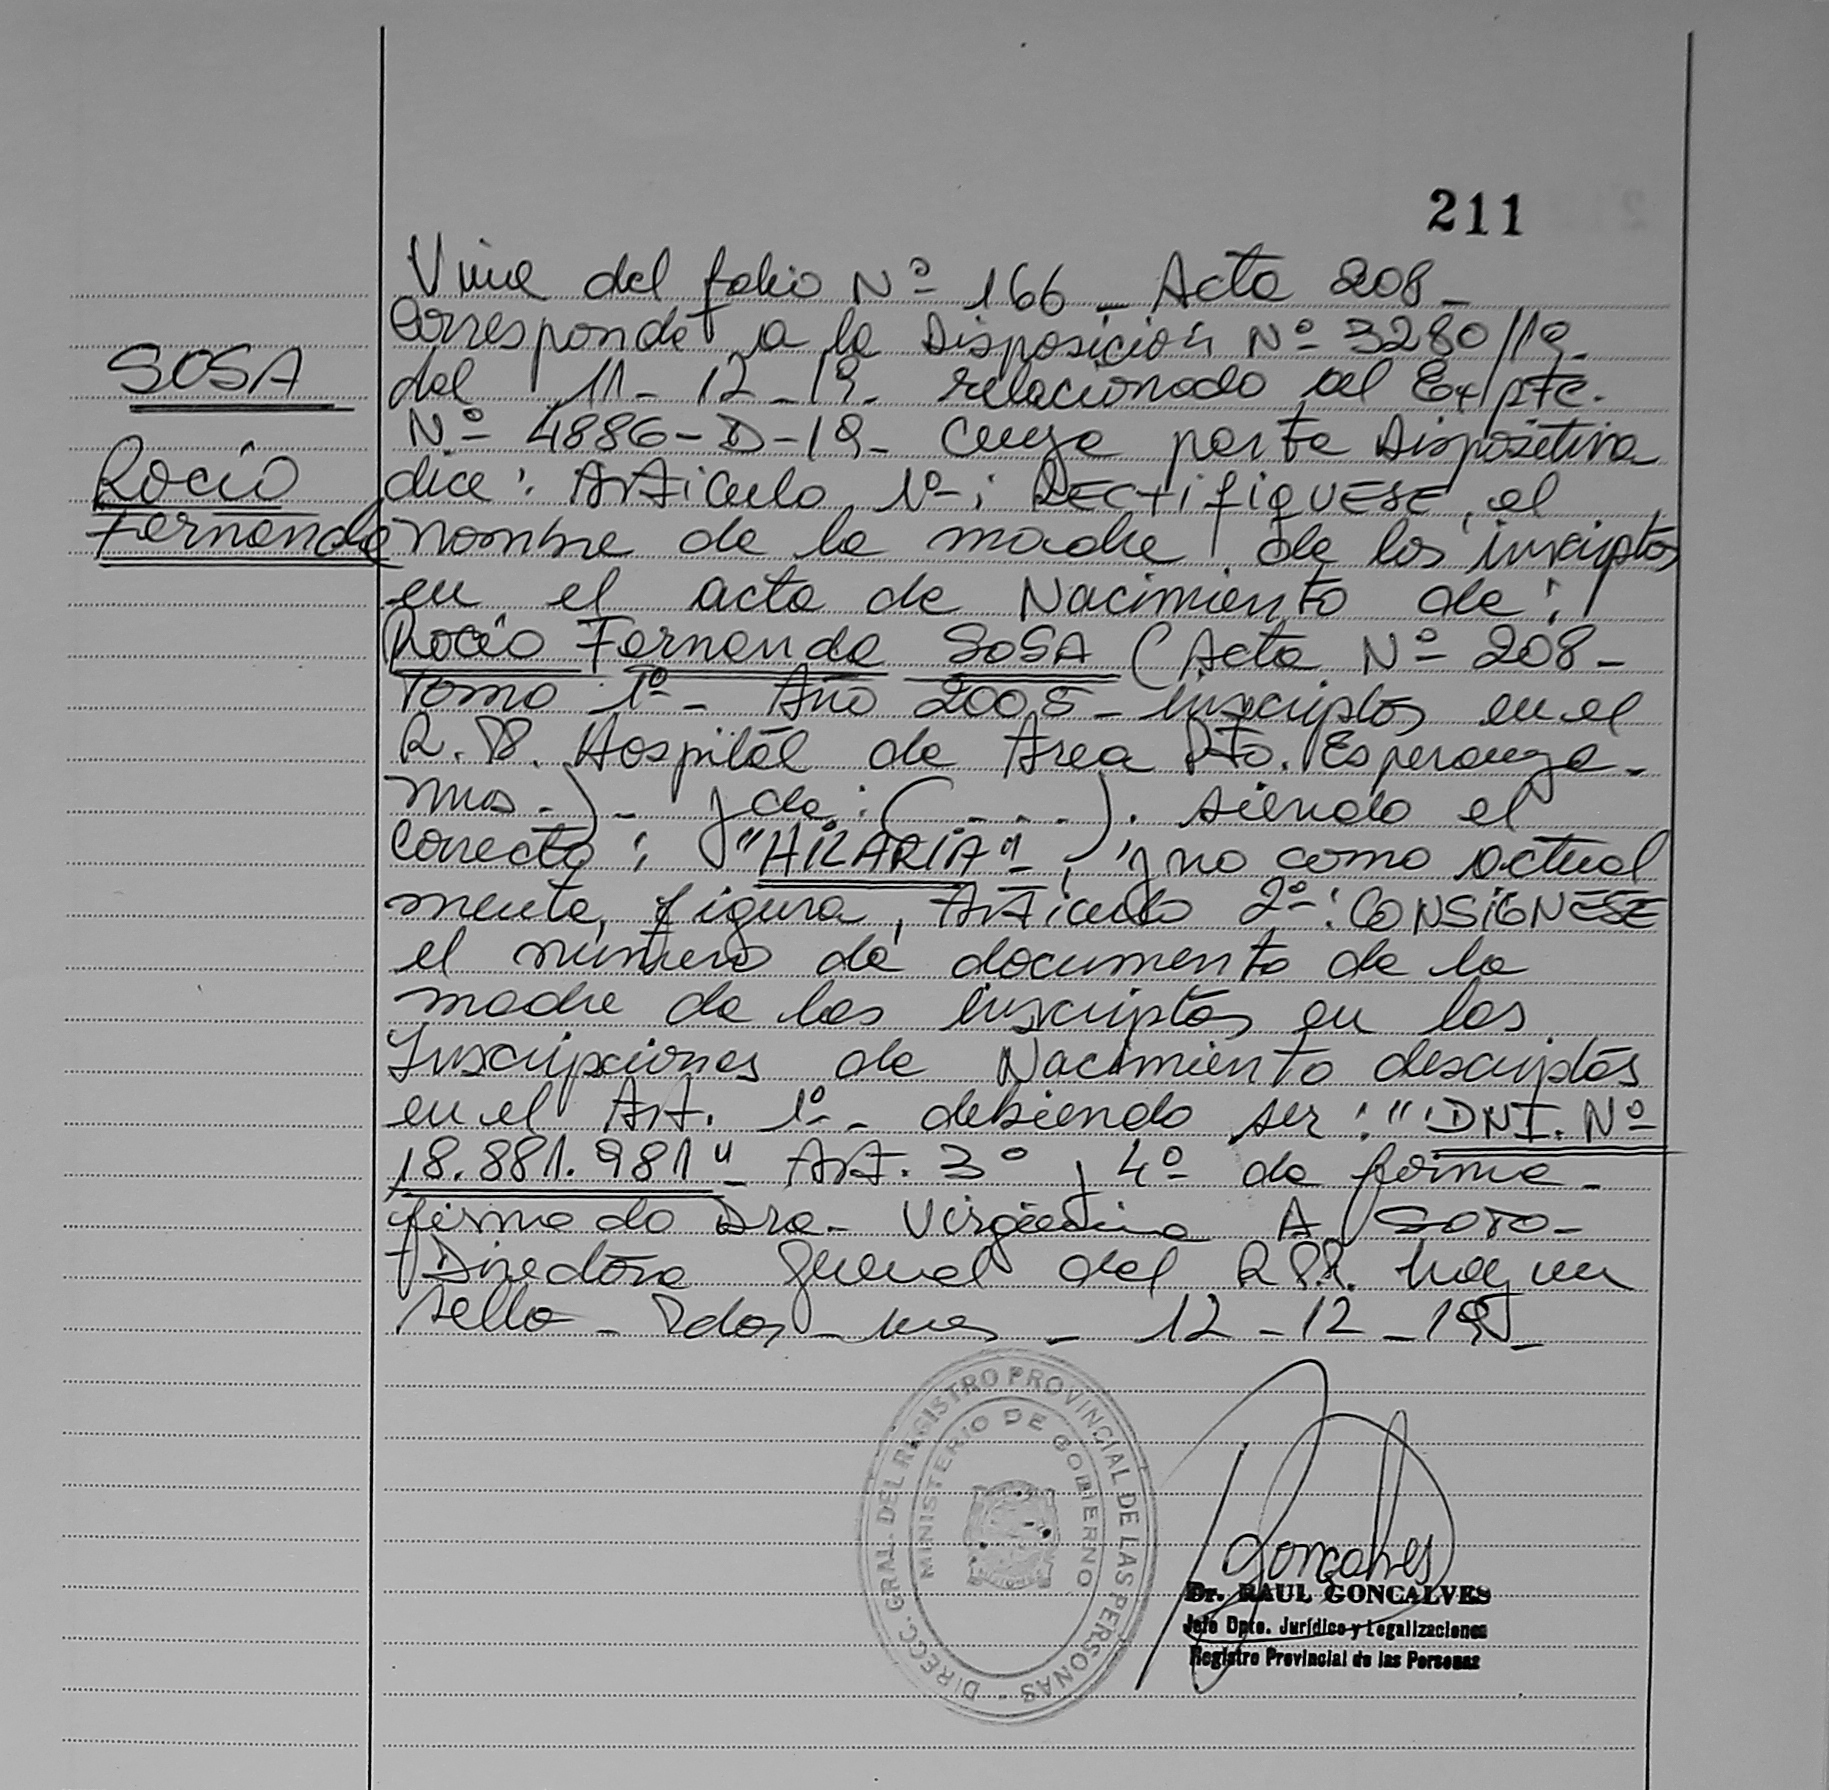 211
Viene del folio Nº 166 - Acta 208 -
Corresponde a la Disposición Nº 3280/19-
del 11-12-19- relacionado al Expte.
Nº 4886-D-19- Cuya parte Dispositiva
dice: Articulo 1º-: RECtifiQUESE, el
nombre de la madre de los inscriptos
en el acta de Nacimiento de:
Rocío Fernanda SOSA (Acta Nº 208-
Tomo 1º- Año 2005- inscriptos en el
R.P.P. Hospital de Area Pto. Esperanza-
Mnes.)- y de: (....). siendo el
correcto: "HILARIA"-, y no como actual
mente, figura, Articulo 2º: CONSIGNESE
el número de documento de la
madre de los inscriptos en las
Inscripciones de Nacimiento descriptos
en el Art. 1º- debiendo ser: "DNI. Nº
18.881.981"- Art. 3º y 4º de forma-
firmado Dra- A SOTO-
Directora General del R.P.P. hay un
sello - Pdas - Mnes - 12-12-19-
SOSA
Rocío
Fernanda
DIRECC. GRAL. DEL REGISTRO PROVINCIAL DE LAS PERSONAS -
MINISTERIO DE GOBIERNO
Goncalves
Dr. RAUL GONCALVES
Jefe Dpto. Jurídico y Legalizaciones
Registro Provincial de las Personas